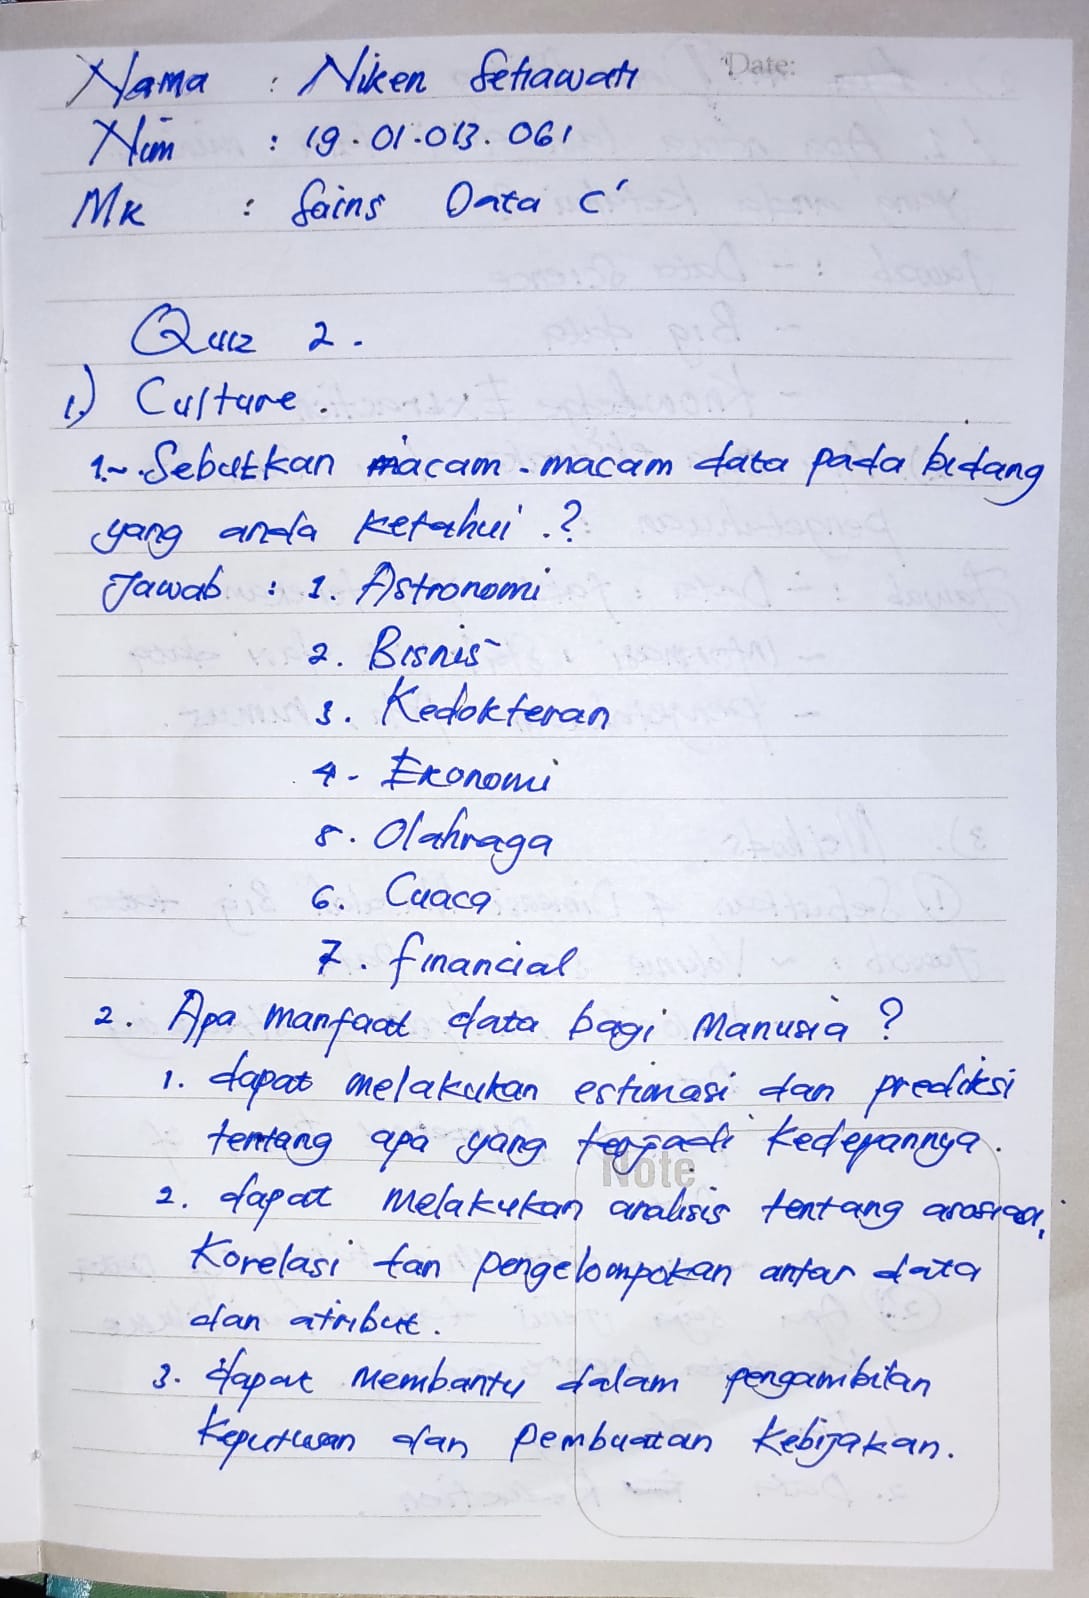 Date:
Nama : Niken Setiawati
Nim : 19.01.013.061
MK : Sains Data C'
Quiz 2.
1.) Culture.
1. Sebutkan macam-macam data pada bidang
yang anda ketahui.?
Jawab : 1. Astronomi
2. Bisnis
3. Kedokteran
4. Ekonomi
5. Olahraga
6. Cuaca
7. financial
2. Apa manfaat data bagi Manusia ?
1. dapat melakukan estimasi dan prediksi
tentang apa yang terjadi kedepannya.
Note
2. dapat melakukan analisis tentang asosiasi,
Korelasi dan pengelompokan antar data
dan atribut.
3. dapat membantu dalam pengambilan
Keputusan dan pembuatan Kebijakan.